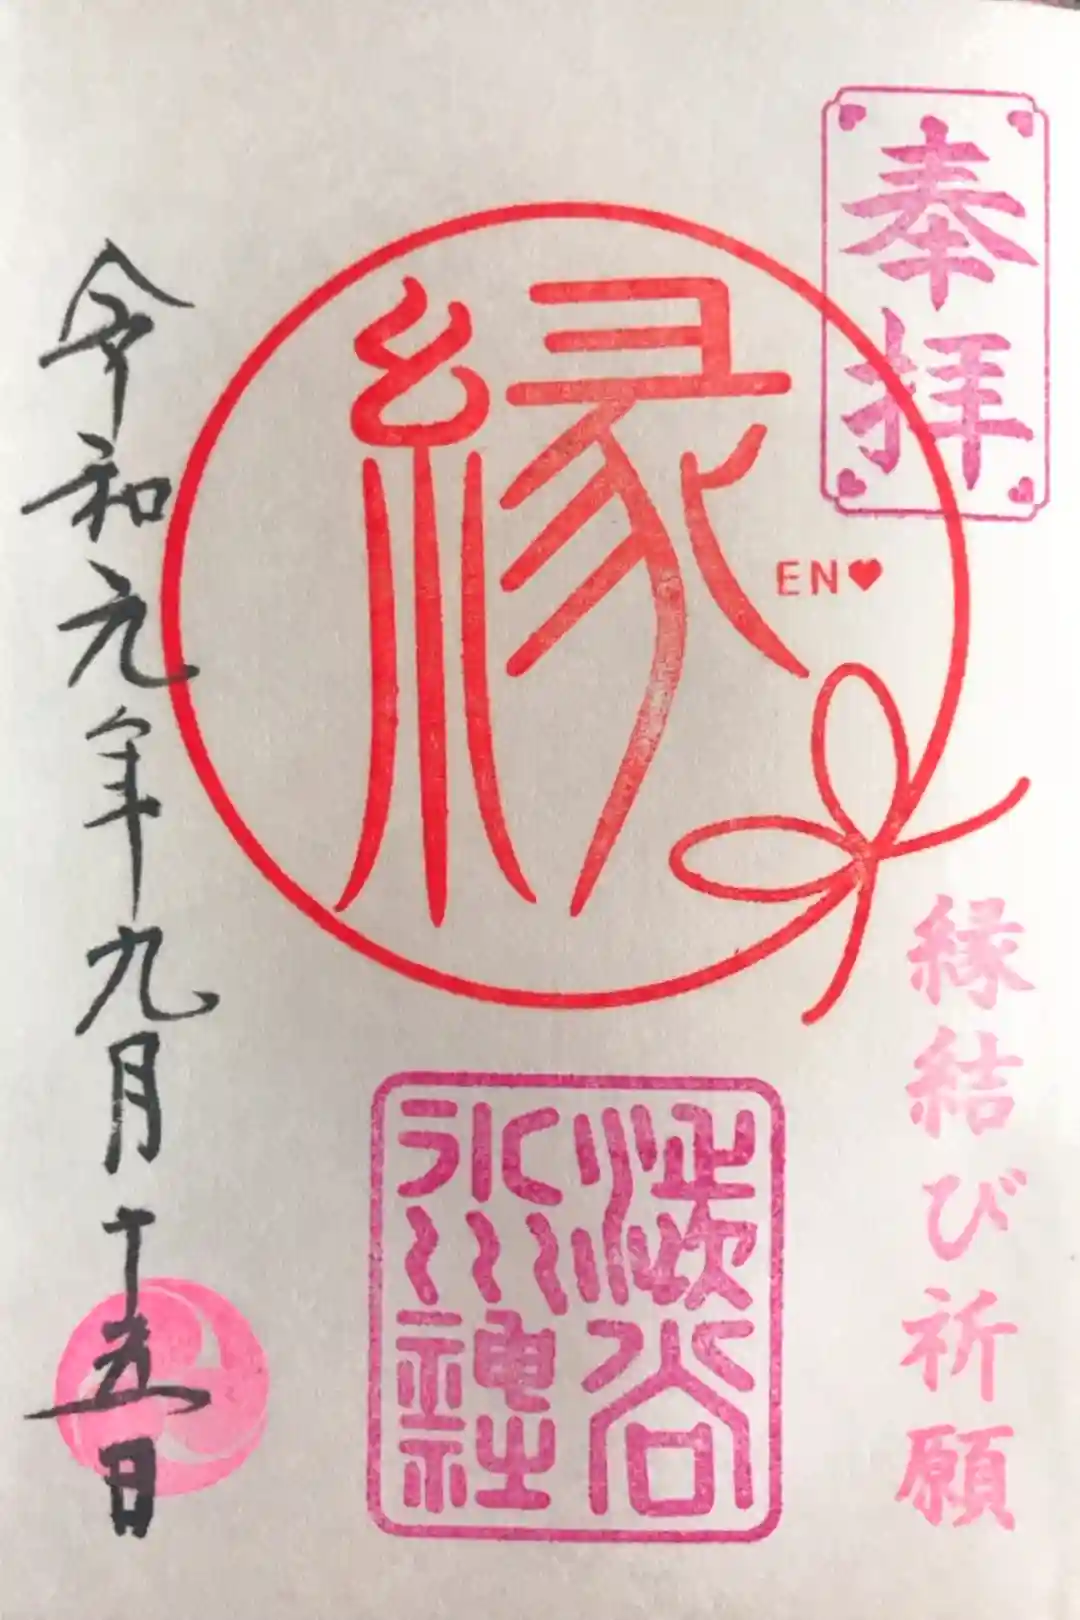 奉拝
縁結び祈願
縁
EN♥
澁谷
氷川
神社
令和元年九月十五日